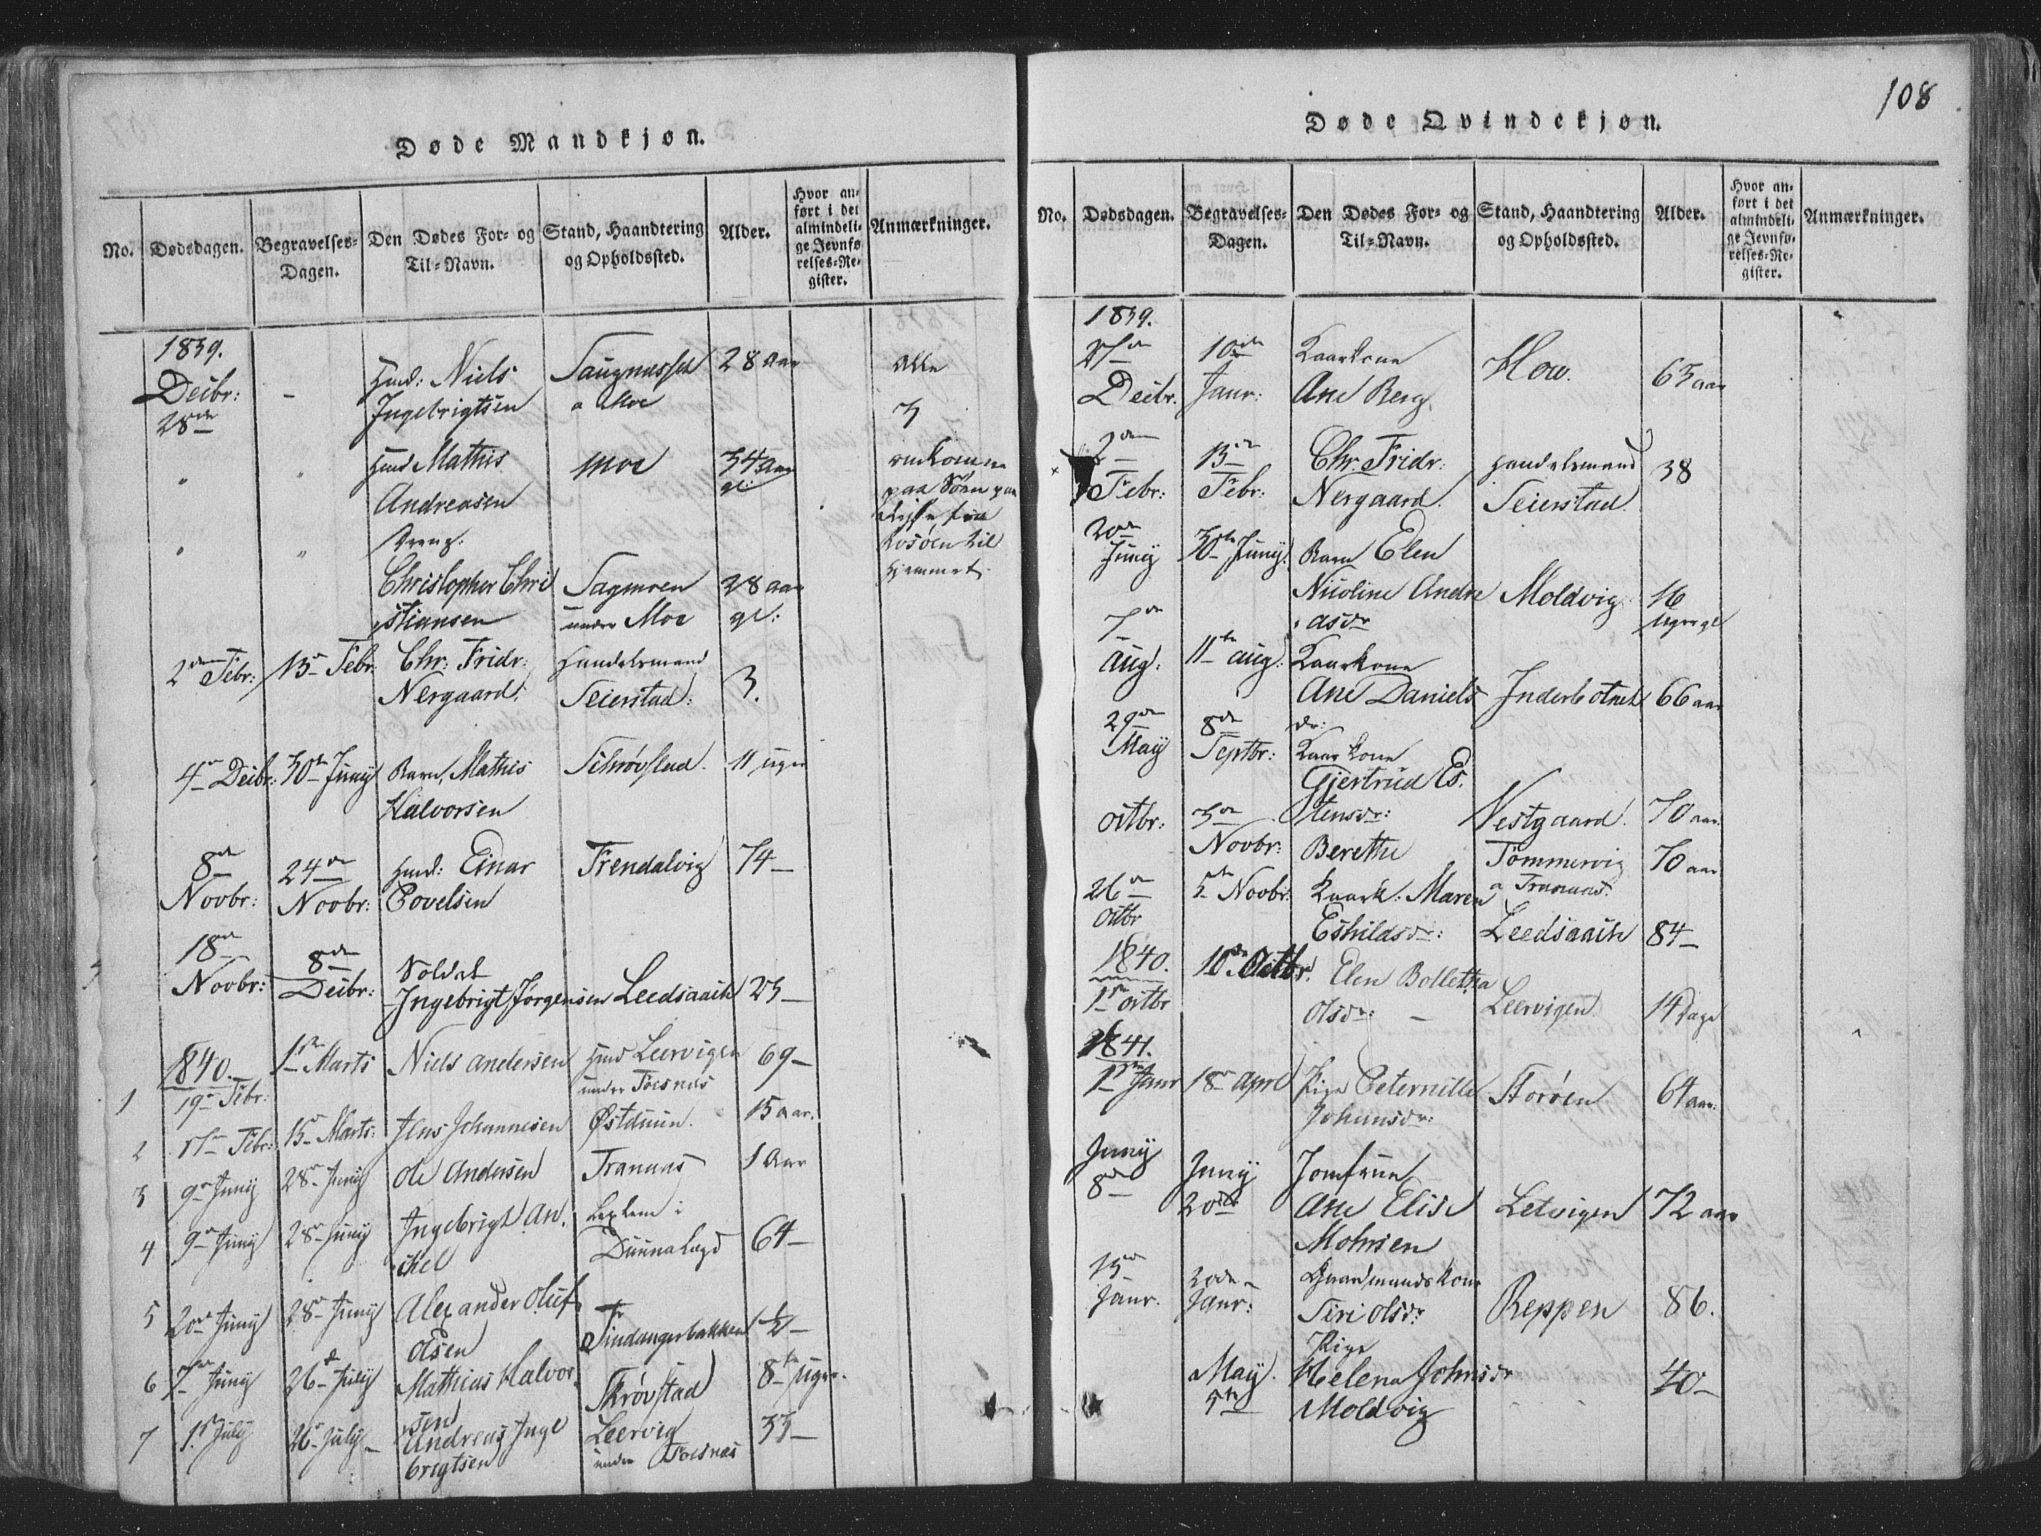 108
Døde Mandkjøn.
No.
Dødsdagen.
Begravelses-
Dagen.
Den Dødes For- og
Til-Navn.
Stand, Haandtering
og Opholdssted.
Alder.
Hvor an-
ført i det
almindeli-
ge Jevnfø-
relses-Re-
gister.
Anmærkninger.
1839.
Decbr:
28de
Niels
Ingebrigtsen
a Moe
28 Aar
alle
3
Mathis
Andreasen
Moe
34 Aar
gl:
omkomne
paa Søen paa
til
Hjemmet.
Dreng.
Christopher Chri
stiansen
Sagmoen
under Moe
28 aar
gl:
2den Febr: 13de Febr.
Chr: Fridr:
Nergaard.
Handelsmand
Seierstad:
3.
4de Decbr: 30te Juny
Barn, Mathis
Halvorsen
Schrøvstad.
11 uger
8de
Novbr:
24de
Novbr:
Einar
Povelsen
Trendalvig
74
18de
Novbr:
8de
Decbr:
Soldat
Ingebrigt Jørgensen
Leedsaach
23
1840.
1
19de Febr:
1ste Marts
Niels Andersen
Leervigen
under Foesnes
69
2
17de Febr:
15de Marts:
Jens Johannesen
Østduun.
15 aar.
3
9de Juny
28de Juny
Ole Andersen
Tranaas
1 Aar
4
9de Juny
28de Juny
Ingebrigt An.
kel
Lexlem i
64
5
20de Juny
28de Juny
Alexander Oluf
Olsen
Findangerbakken
1/2
6
7de Juny
26de July
Mathias Halvor
sen
Skrøvstad
8te uger.
7
1ste July
26de July
Andreas Inge
brigtsen
Leervig
under Foesnæs
33
Døde Qvindekjøn.
No.
Dødsdagen.
Begravelses-
Dagen.
Den Dødes For- og
Til-Navn.
Stand, Haandtering
og Opholdssted.
Alder.
Hvor an-
ført i det
almindeli-
ge Jevnfø-
relses-Re-
gister.
Anmærkninger.
1839.
27de
Decbr.
10de
Janr:
Kaarkone
Ane Berg.
How.
63 aar
2den
Febr:
13de
Febr:
Chr: Fridr:
Nergaard.
Handelsmand
Seierstad.
38
20de
Juny
30te Juny.
Barn Elen
Nicoline Andre
asdr
Moldvig.
16
uger gl
7de
Aug:
11te Aug:
Kaarkone
Ane Daniels
dr:
Inderbotnet
66 aar
29de
May
8de
Septbr:
Kaarkone
Gjertrud Es.
tensdr:
Vestgaard.
70 aar
Octbr:
3de
Novbr:
Berethe
Tømmervig
a Tranaas.
70 aar
26de
Octbr
Novbr.
Kaark: Maren
Eskildsdr:
Leedsaach
84
1840.
1ste Octbr
18de Octbr.
Elen Bolletha
Olsdr:
Leervigen.
14 Dage
1841.
1ste Janr
18de April
Pige Peternille
Johansdr:
Storøen
64 aar:
Juny
8de
Juny
20de
Jomfrue
Ane Elise
Mohrsen
Letvigen
72 aar
13de
Janr.
Janr:
Gaardmandskone
Siri Olsdr:
Reppen
86.
May.
5te
Pige
Helena Johnsdr
Moldvig
40